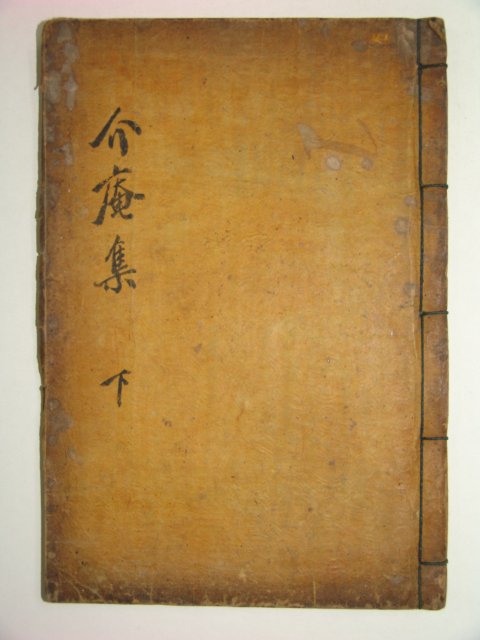 介庵集 下